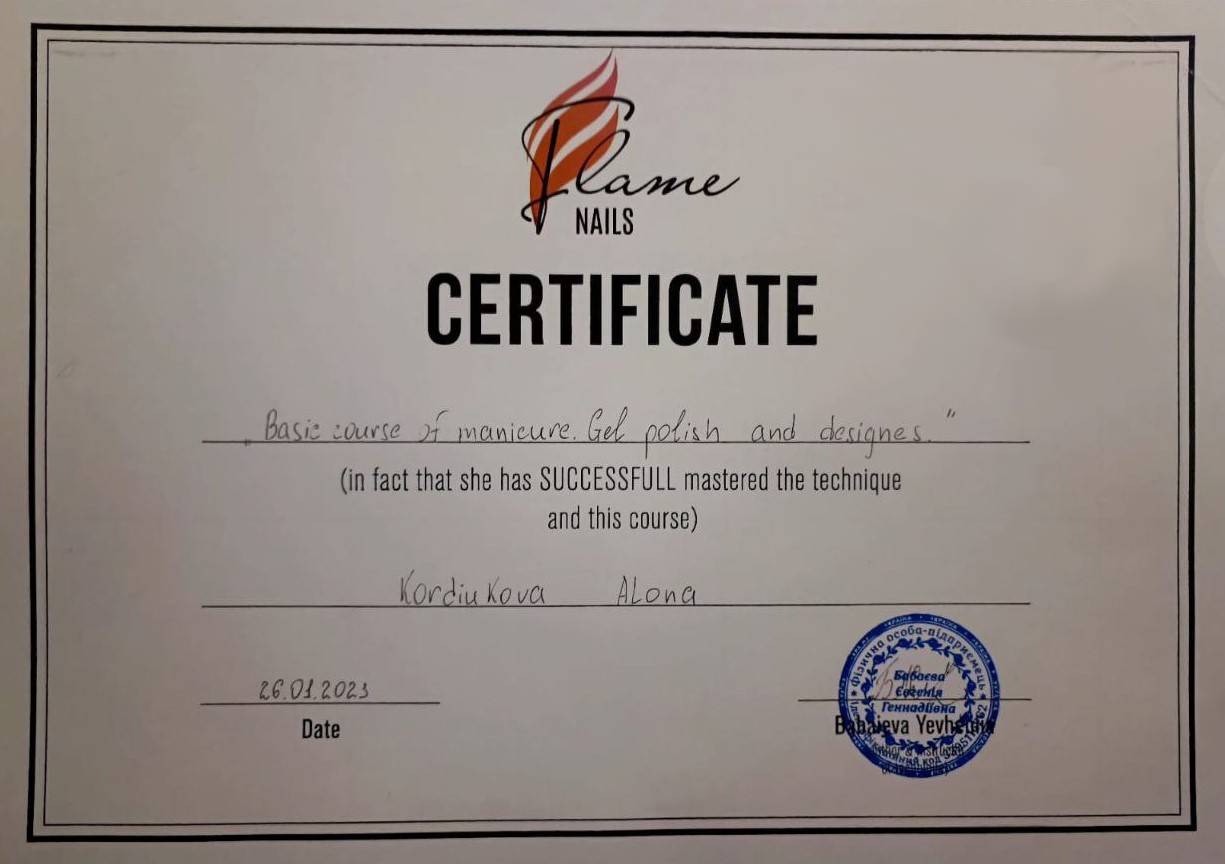 Flame
NAILS
CERTIFICATE
„Basic course of manicure. Gel polish and designes.”
(in fact that she has SUCCESSFULL mastered the technique
and this course)
Kordiukova Alona
26.01.2023
Date
Фізична особа-підприємець
Бабаєва
Євгенія
Геннадіївна
Babaieva Yevheniia